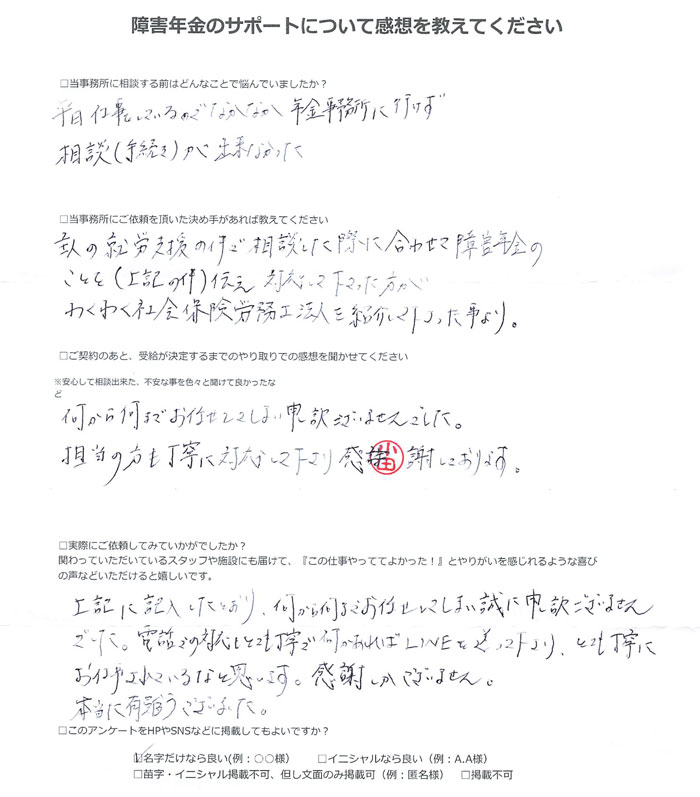 障害年金のサポートについて感想を教えてください
□当事務所に相談する前はどんなことで悩んでいましたか?
平日仕事をしているのでなかなか年金事務所に行けず
相談(手続き)が出来なかった
□当事務所にご依頼を頂いた決め手があれば教えてください
の就労支援の件で相談した際に合わせて障害年金の
ことを(上記の件)伝え対応して下さった方が
わくわく社会保険労務士法人を紹介して下さった事より。
□ご契約のあと、受給が決定するまでのやり取りでの感想を聞かせてください
※安心して相談出来た、不安な事を色々と聞けて良かったな
ど
何から何までお任せしてしまい申訳ございませんでした。
担当の方も丁寧に対応して下さり感謝しております。
□実際にご依頼してみていかがでしたか?
関わっていただいているスタッフや施設にも届けて、『この仕事やっててよかった!』とやりがいを感じれるような喜び
の声などいただけると嬉しいです。
上記に記入したとおり、何から何までお任せしてしまい誠に申し訳ございません
でした。電話での対応もとても丁寧で何かあればLINEを送って下さり、とても丁寧に
お仕事されているなと思います。感謝しかございません。
本当に有難うございました。
□このアンケートをHPやSNSなどに掲載してもよいですか?
☑名字だけなら良い(例:○○様) □イニシャルなら良い(例:A.A様)
□苗字・イニシャル掲載不可、但し文面のみ掲載可(例:匿名様) □掲載不可